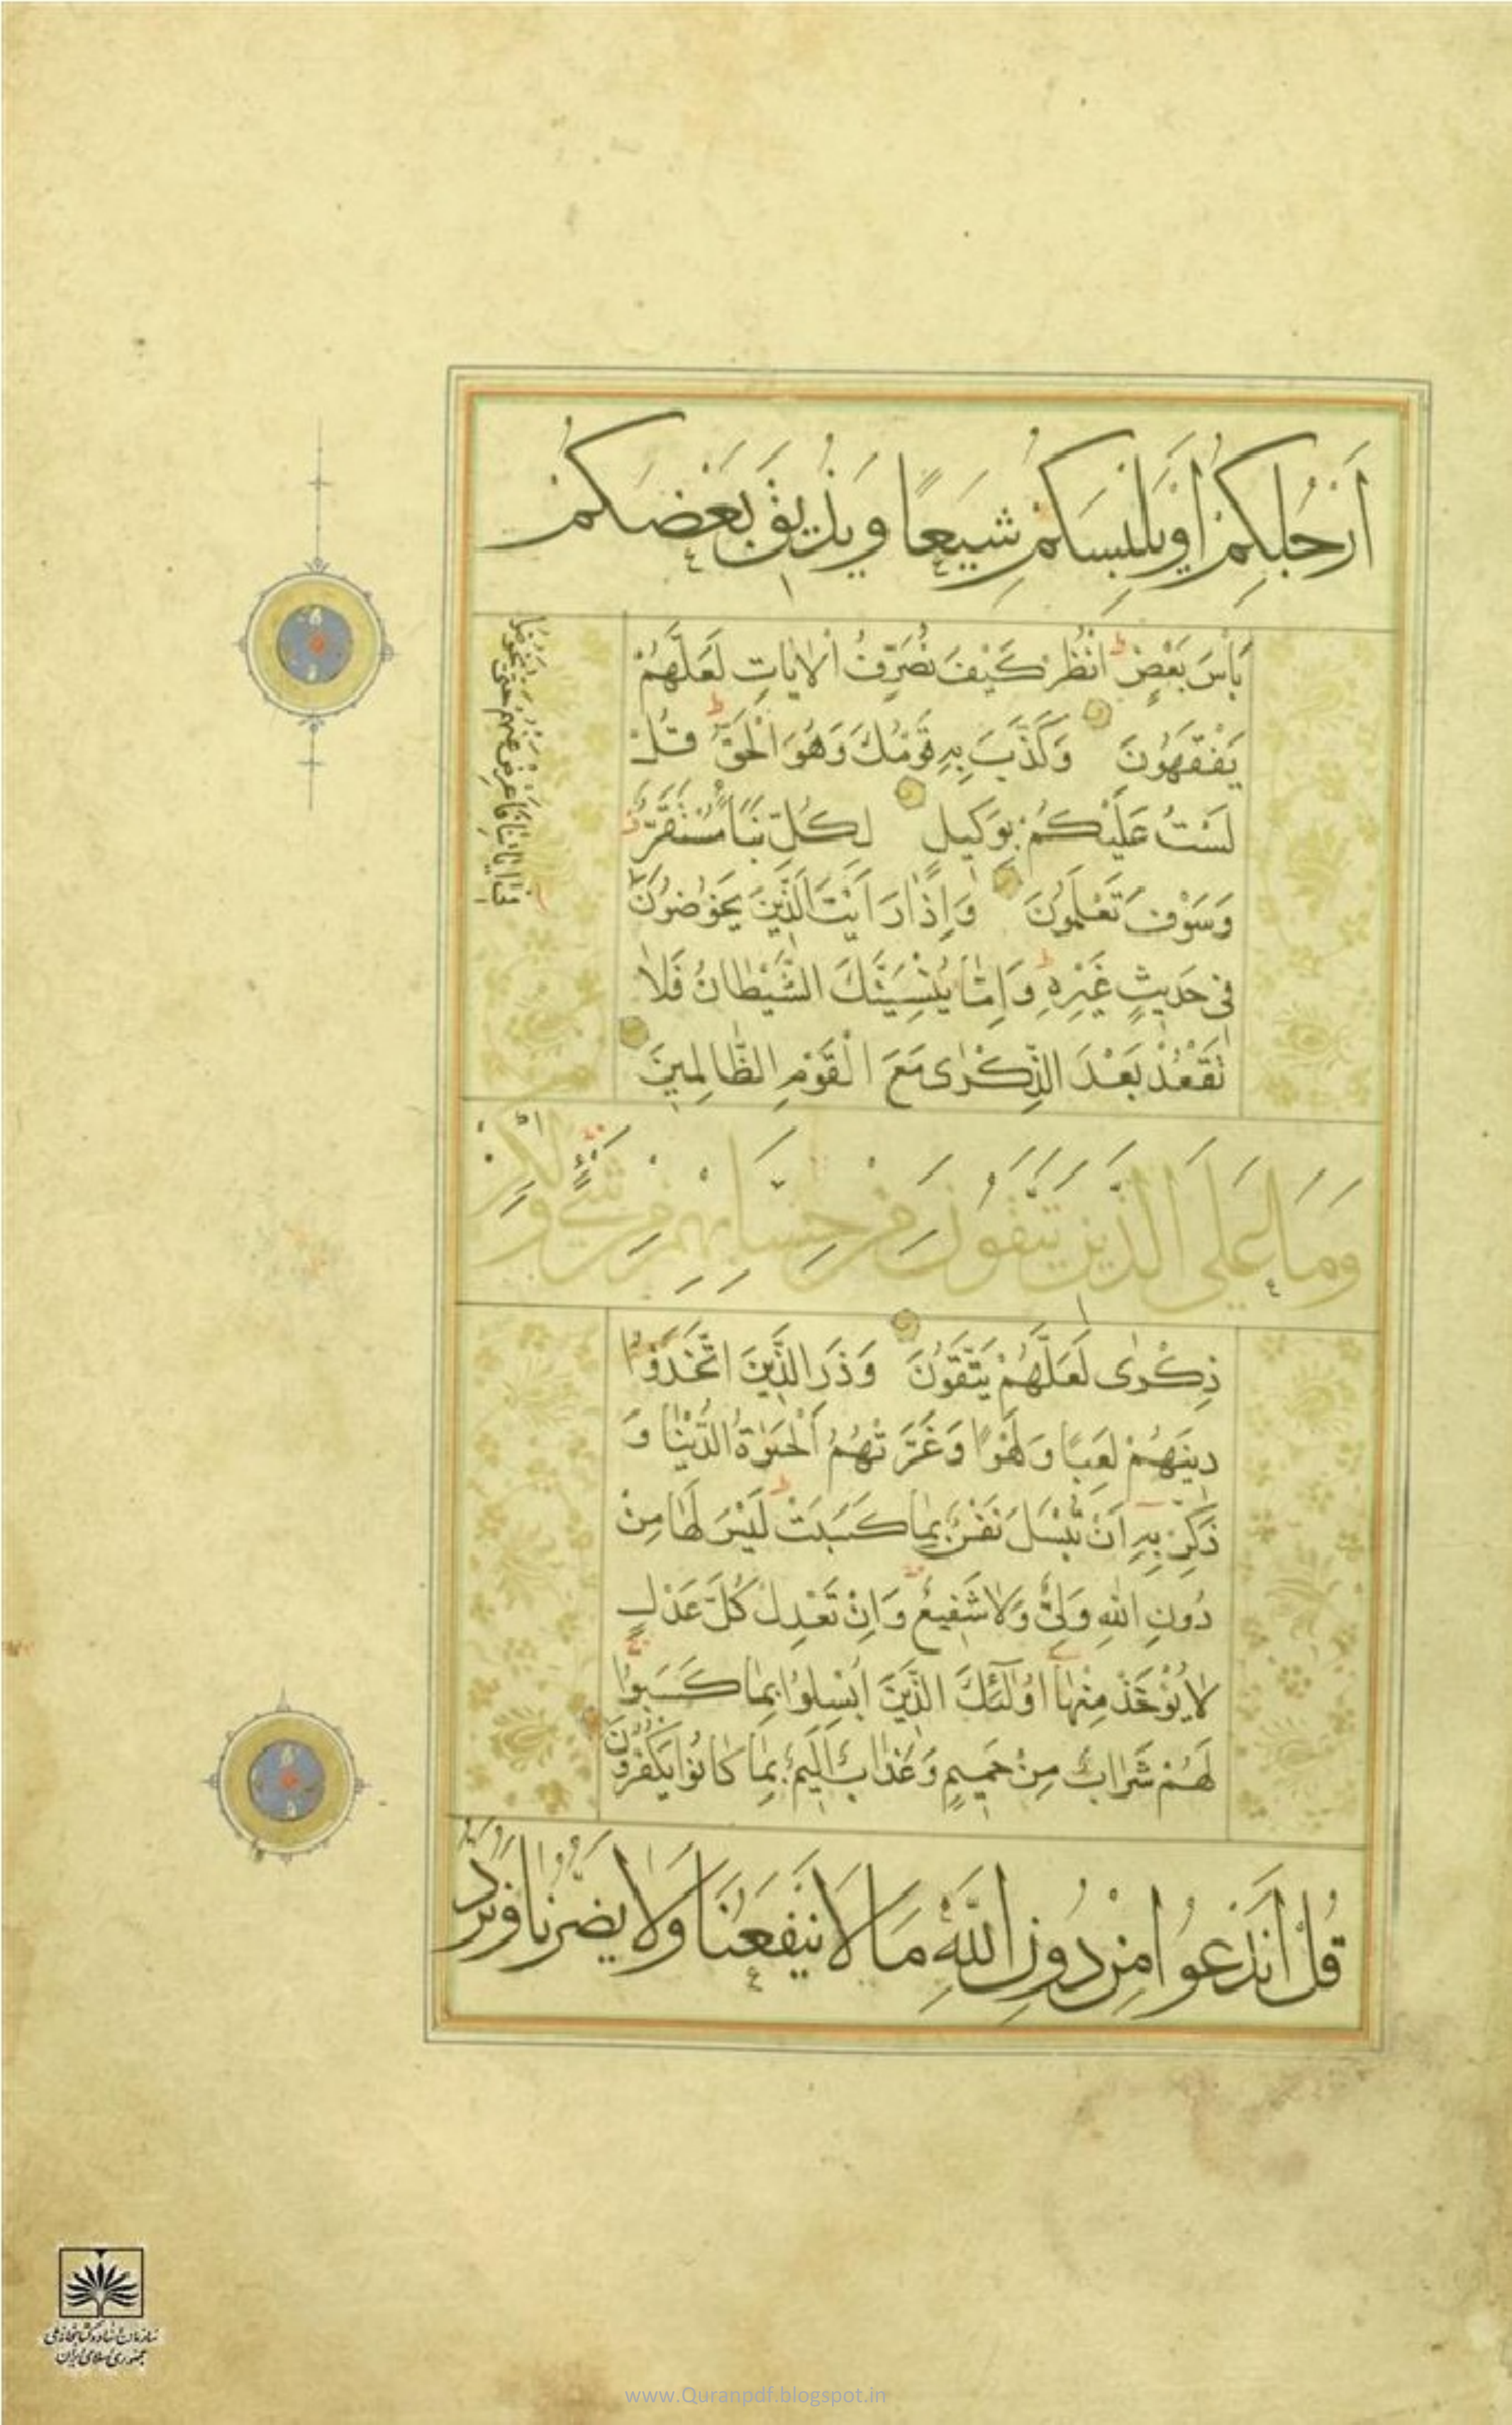 أَرْجُلِكُمْ أَوْ يَلْبِسَكُمْ شِيَعًا وَيُذِيقَ بَعْضَكُمْ
بَأْسَ بَعْضٍ انْظُرْ كَيْفَ نُصَرِّفُ الْاٰيَاتِ لَعَلَّهُمْ
يَفْقَهُونَ وَكَذَّبَ بِهِ قَوْمُكَ وَهُوَ الْحَقُّ قُلْ
لَسْتُ عَلَيْكُمْ بِوَكِيلٍ لِكُلِّ نَبَأٍ مُسْتَقَرٌّ
وَسَوْفَ تَعْلَمُونَ وَإِذَا رَأَيْتَ الَّذِينَ يَخُوضُونَ
فِي اٰيَاتِنَا فَأَعْرِضْ عَنْهُمْ حَتَّى يَخُوضُوا
فِي حَدِيثٍ غَيْرِهِ وَإِمَّا يُنْسِيَنَّكَ الشَّيْطَانُ فَلَا
تَقْعُدْ بَعْدَ الذِّكْرٰى مَعَ الْقَوْمِ الظَّالِمِينَ
وَمَا عَلَى الَّذِينَ يَتَّقُونَ مِنْ حِسَابِهِمْ مِنْ شَيْءٍ وَلٰكِنْ
ذِكْرٰى لَعَلَّهُمْ يَتَّقُونَ وَذَرِ الَّذِينَ اتَّخَذُوا
دِينَهُمْ لَعِبًا وَلَهْوًا وَغَرَّتْهُمُ الْحَيٰوةُ الدُّنْيَا وَ
ذَكِّرْ بِهِ أَنْ تُبْسَلَ نَفْسٌ بِمَا كَسَبَتْ لَيْسَ لَهَا مِنْ
دُونِ اللهِ وَلِيٌّ وَلَا شَفِيعٌ وَإِنْ تَعْدِلْ كُلَّ عَدْلٍ
لَا يُؤْخَذْ مِنْهَا اُولٰئِكَ الَّذِينَ اُبْسِلُوا بِمَا كَسَبُوا
لَهُمْ شَرَابٌ مِنْ حَمِيمٍ وَعَذَابٌ أَلِيمٌ بِمَا كَانُوا يَكْفُرُونَ
قُلْ أَنَدْعُوا مِنْ دُونِ اللَّهِ مَا لَا يَنْفَعُنَا وَلَا يَضُرُّنَا وَنُرَدُّ
سازمان اسناد و کتابخانه ملی
جمهوری اسلامی ایران
www.Quranpdf.blogspot.in